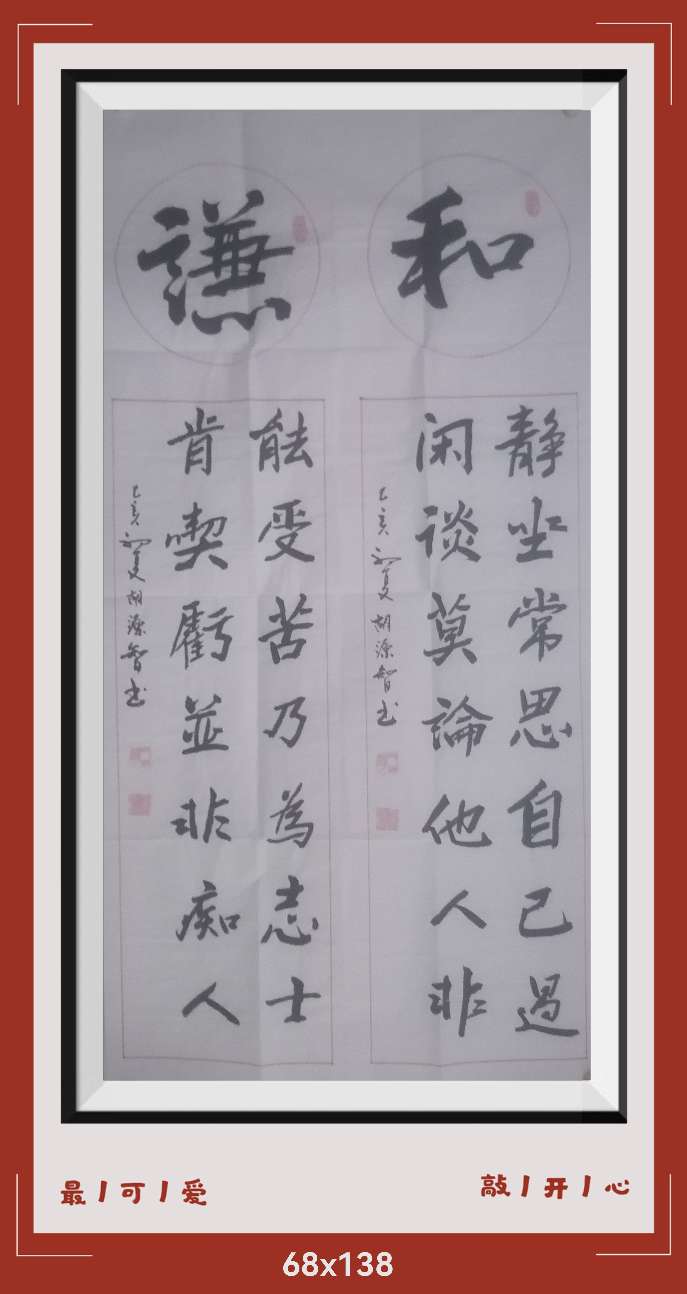 和
静坐常思自己過
闲谈莫論他人非
己亥初夏胡源智书
謙
能受苦乃為志士
肯喫虧並非痴人
己亥初夏胡源智书
最丨可丨爱
敲丨开丨心
68x138